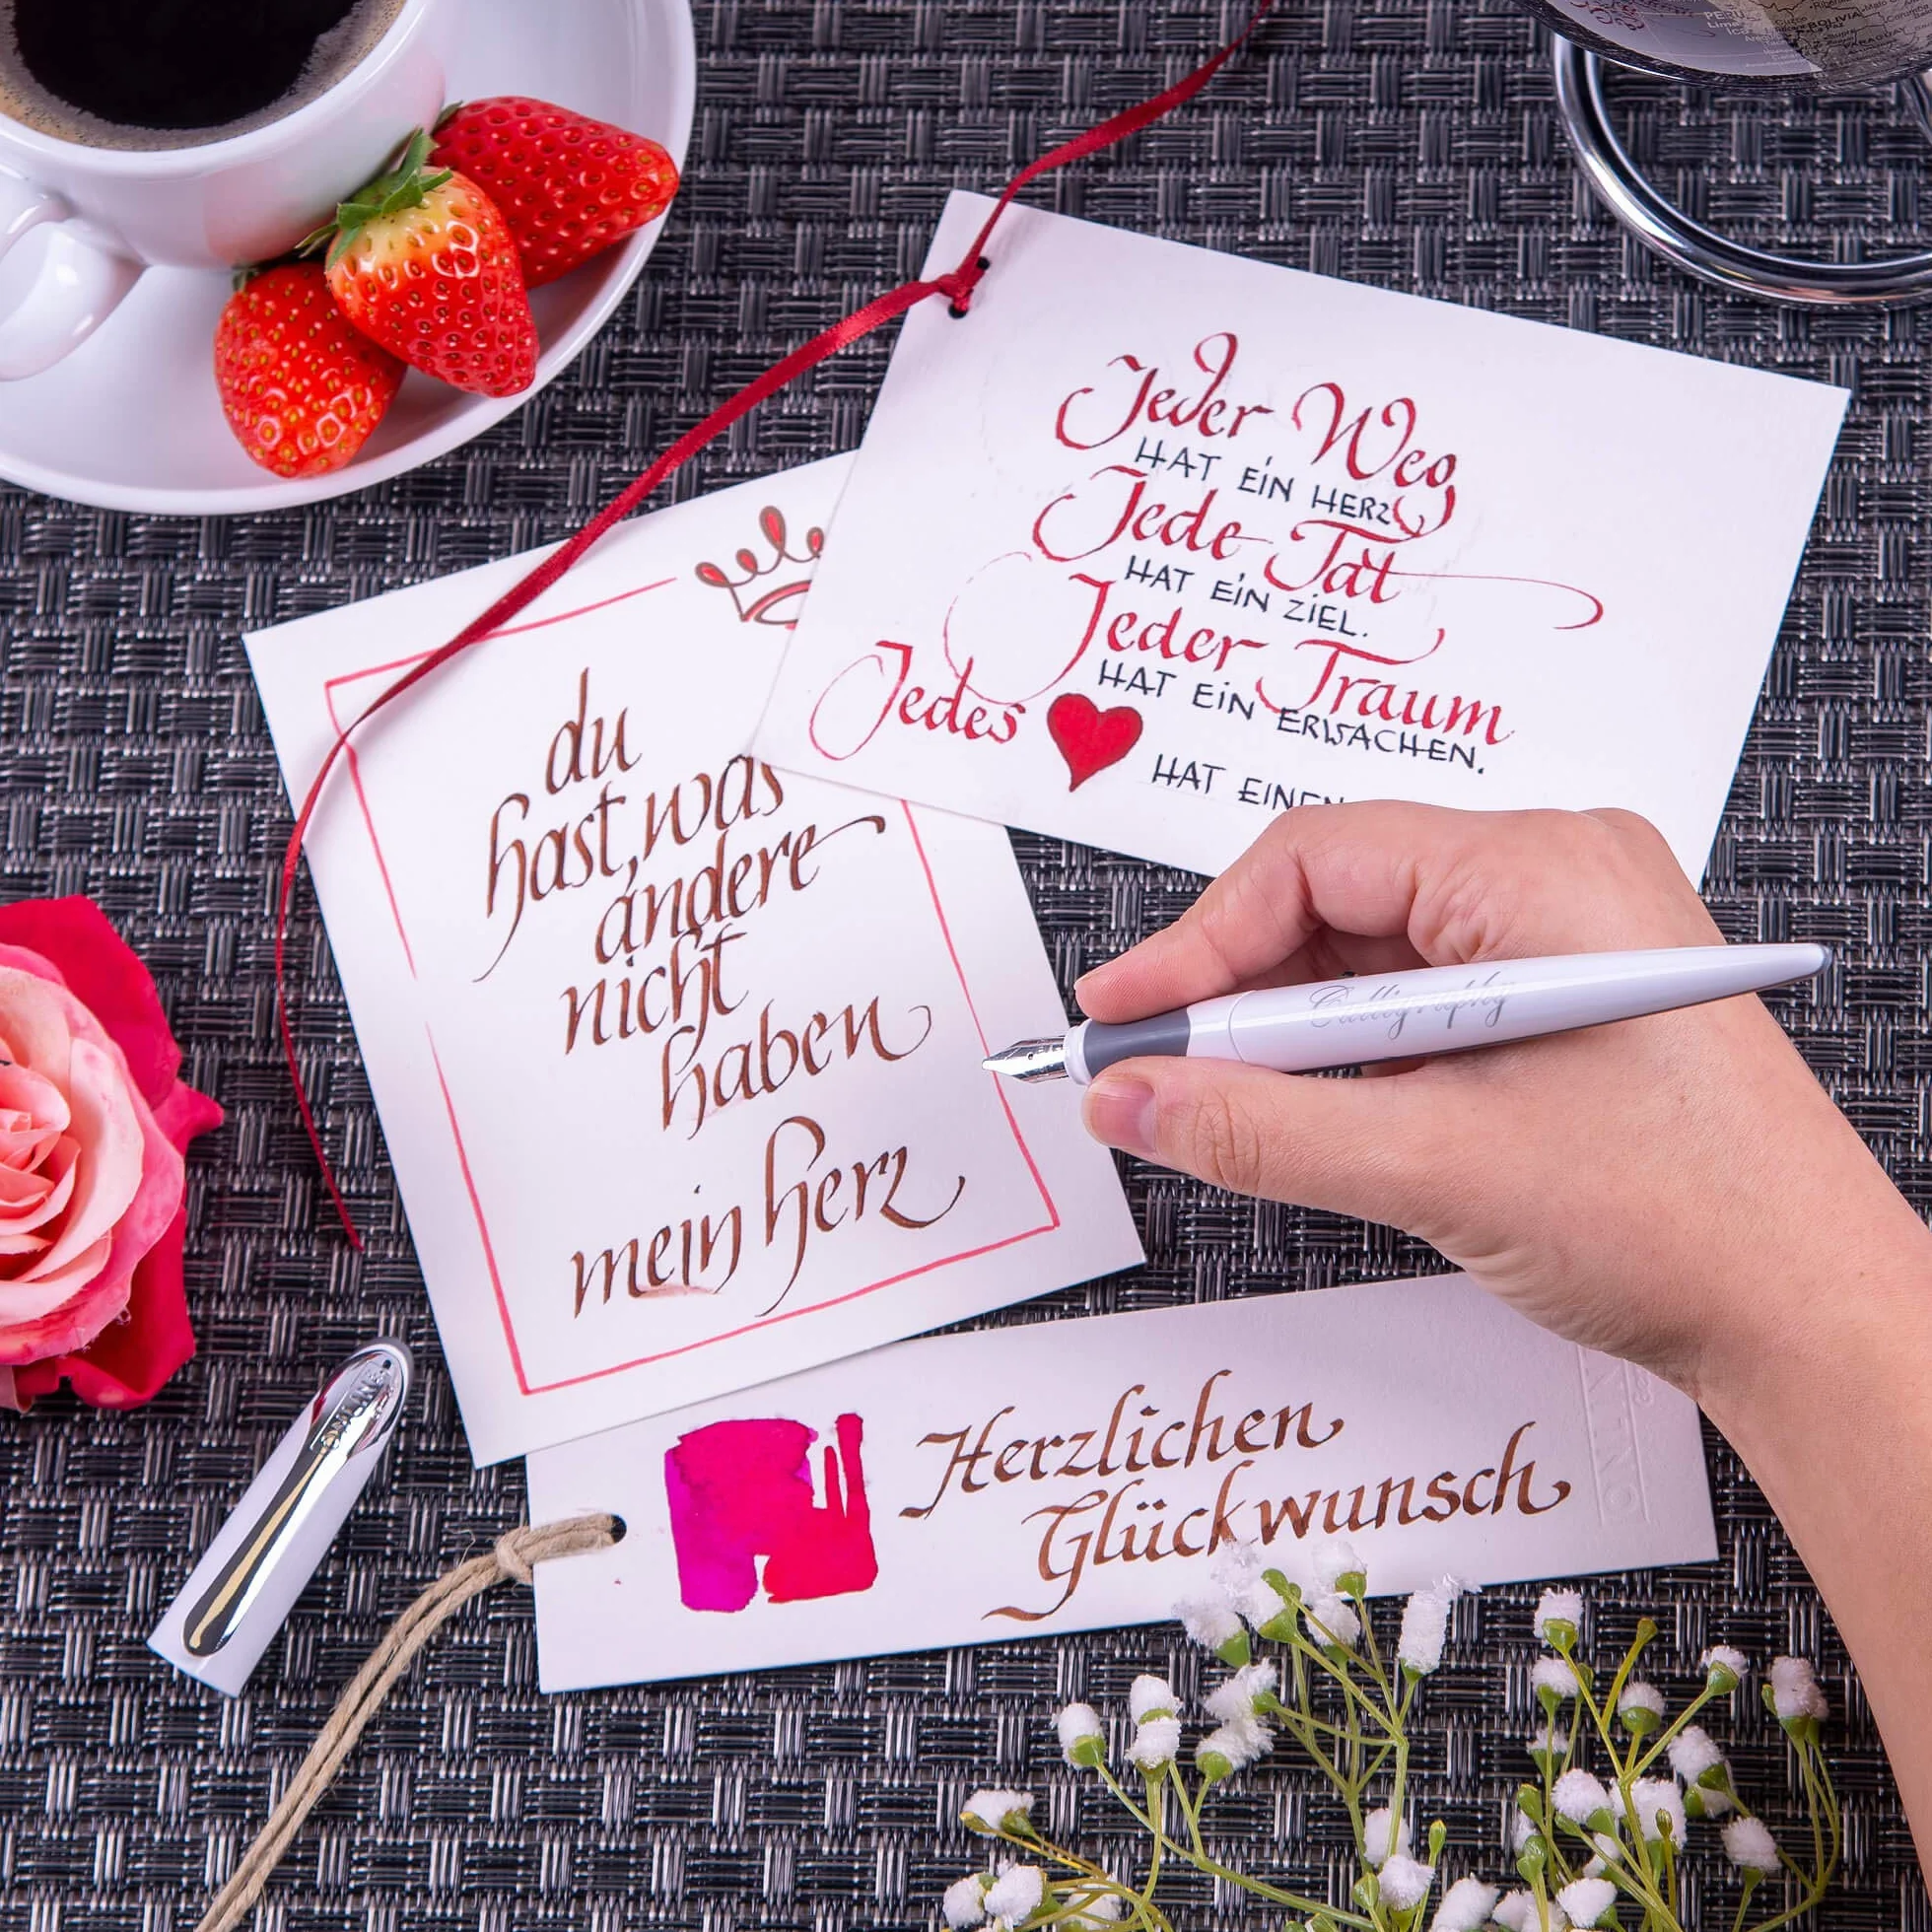 Jeder Weg
HAT EIN HERZ
Jede Tat
HAT EIN ZIEL.
Jeder Traum
HAT EIN ERWACHEN.
Jedes
HAT EINEN
du
hast, was
andere
nicht
haben
mein herz
Calligraphy
Herzlichen
Glückwunsch
ONLINE
ONLINE
PERU
Lima
BOLIVIA
PARAGUAY